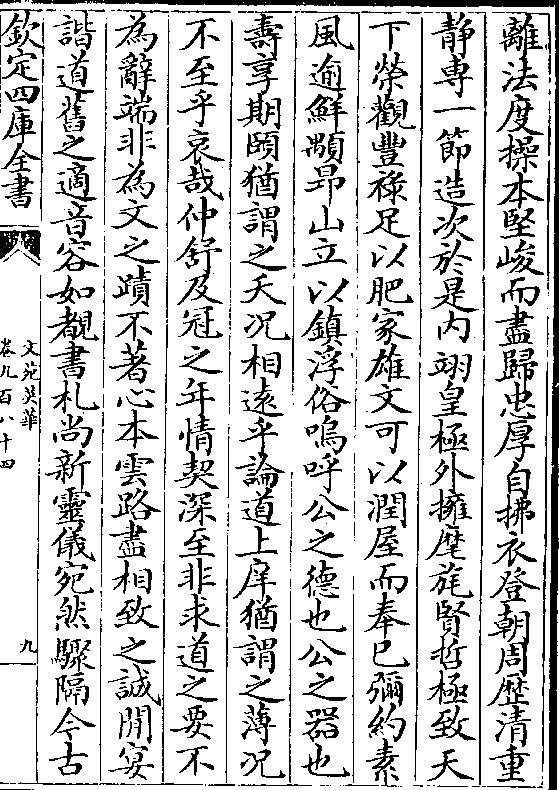 離法度操本堅峻而盡歸忠厚自拂衣登朝周歴清重
静専一節造次於是内翊皇極外擁麾旄賢哲極致天
下榮觀豐祿足以肥家雄文可以潤屋而奉已彌約素
風逾鮮顒昻山立以鎮浮俗嗚呼公之徳也公之器也
壽享期頤猶謂之夭况相逺乎論道上庠猶謂之薄况
不至乎哀哉仲舒及冠之年情契深至非求道之要不
為辭端非為文之蹟不著心本雲路盡相致之誠開宴
諧道舊之適音容如覩書札尚新靈儀宛然驟隔今古
欽定四庫全書
文苑英華
卷九百八十四
九